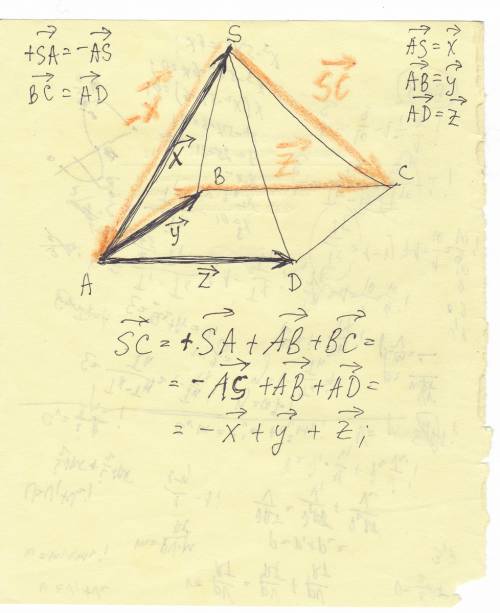 +S⃗A⃗ = -A⃗S⃗
B⃗C⃗ = A⃗D⃗
A⃗S⃗ = x⃗
A⃗B⃗ = y⃗
A⃗D⃗ = z⃗
S
-x⃗
S⃗C⃗
x⃗
z⃗
B
C
y⃗
A
z⃗
D
S⃗C⃗ = +S⃗A⃗ + A⃗B⃗ + B⃗C⃗ =
= -A⃗S⃗ + A⃗B⃗ + A⃗D⃗ =
= -x⃗ + y⃗ + z⃗;